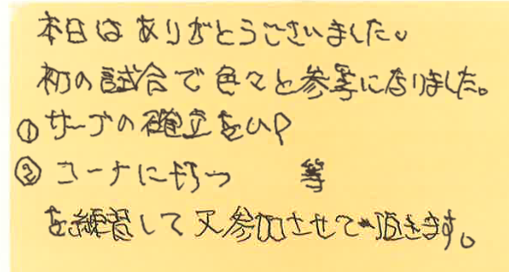 本日はありがとうございました。
初の試合で色々と参考になりました。
① サーブの確立をUP
② コーナに打つ 等
を練習して又参加させて頂きます。